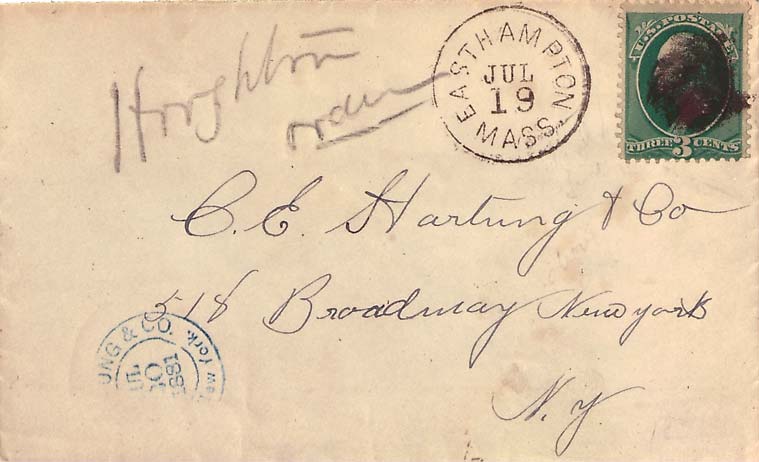 Houghton
order
EASTHAMPTON
JUL
19
MASS.
U.S. POSTAGE
THREE 3 CENTS
C. E. Hartung & Co
518 Broadway New york
N. Y.
UNG & CO.
1881
ew York.